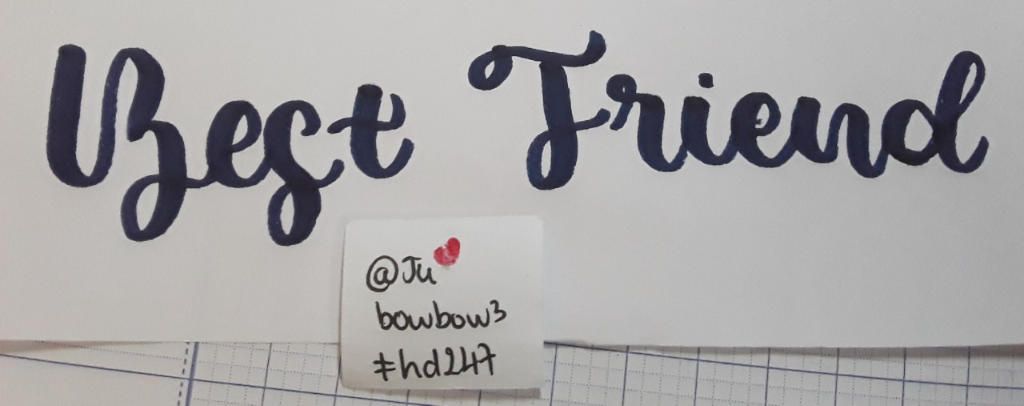 Best Friend
@Ju
bowbow3
#hd247